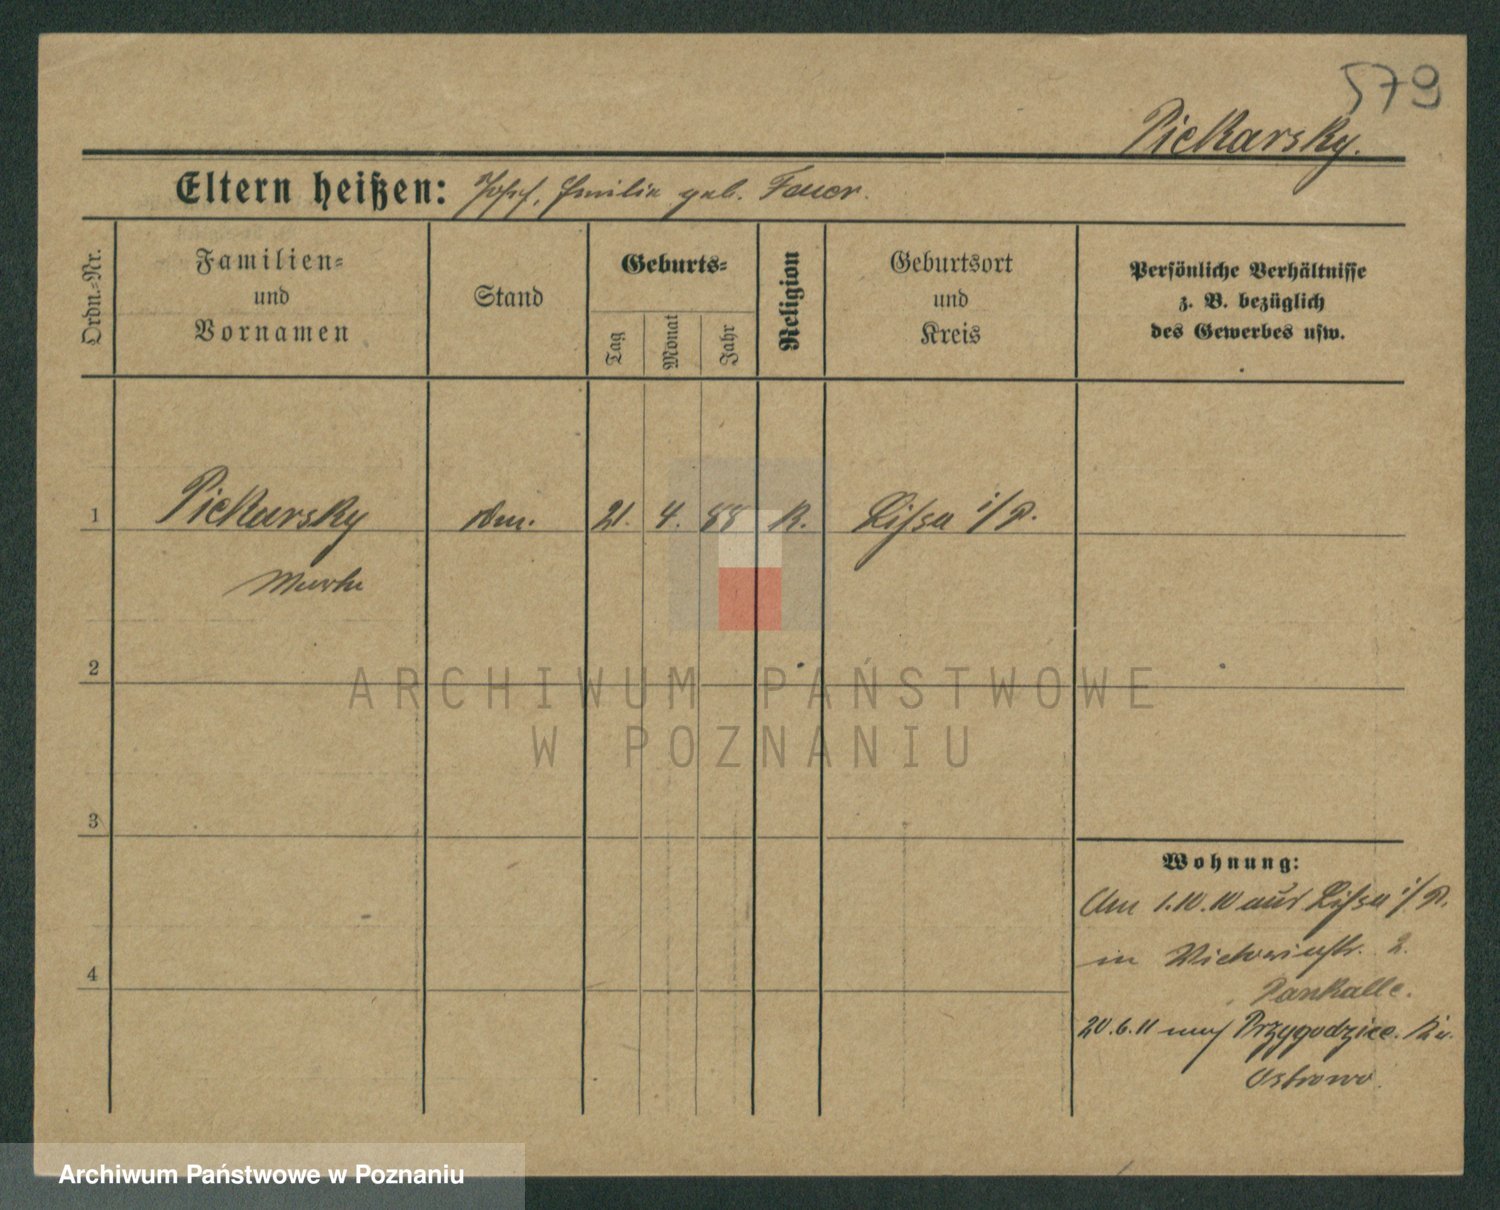 579
Piekarsky.
Eltern heißen: Josef, Emilie geb. Feuer.
Ordn.=Nr.
Familien=
und
Vornamen
Stand
Geburts=
Tag
Monat
Jahr
Religion
Geburtsort
und
Kreis
Persönliche Verhältnisse
z. B. bezüglich
des Gewerbes usw.
1 Piekarsky 21. 4. 88 K. Lissa i/P.
2
3
4
Wohnung:
Am 1.10.10 aus Lissa i/P.
in Victoriastr. 2.
20.6.11 nach Przygodzice. Kr.
Ostrowo.
ARCHIWUM PAŃSTWOWE
W POZNANIU
Archiwum Państwowe w Poznaniu